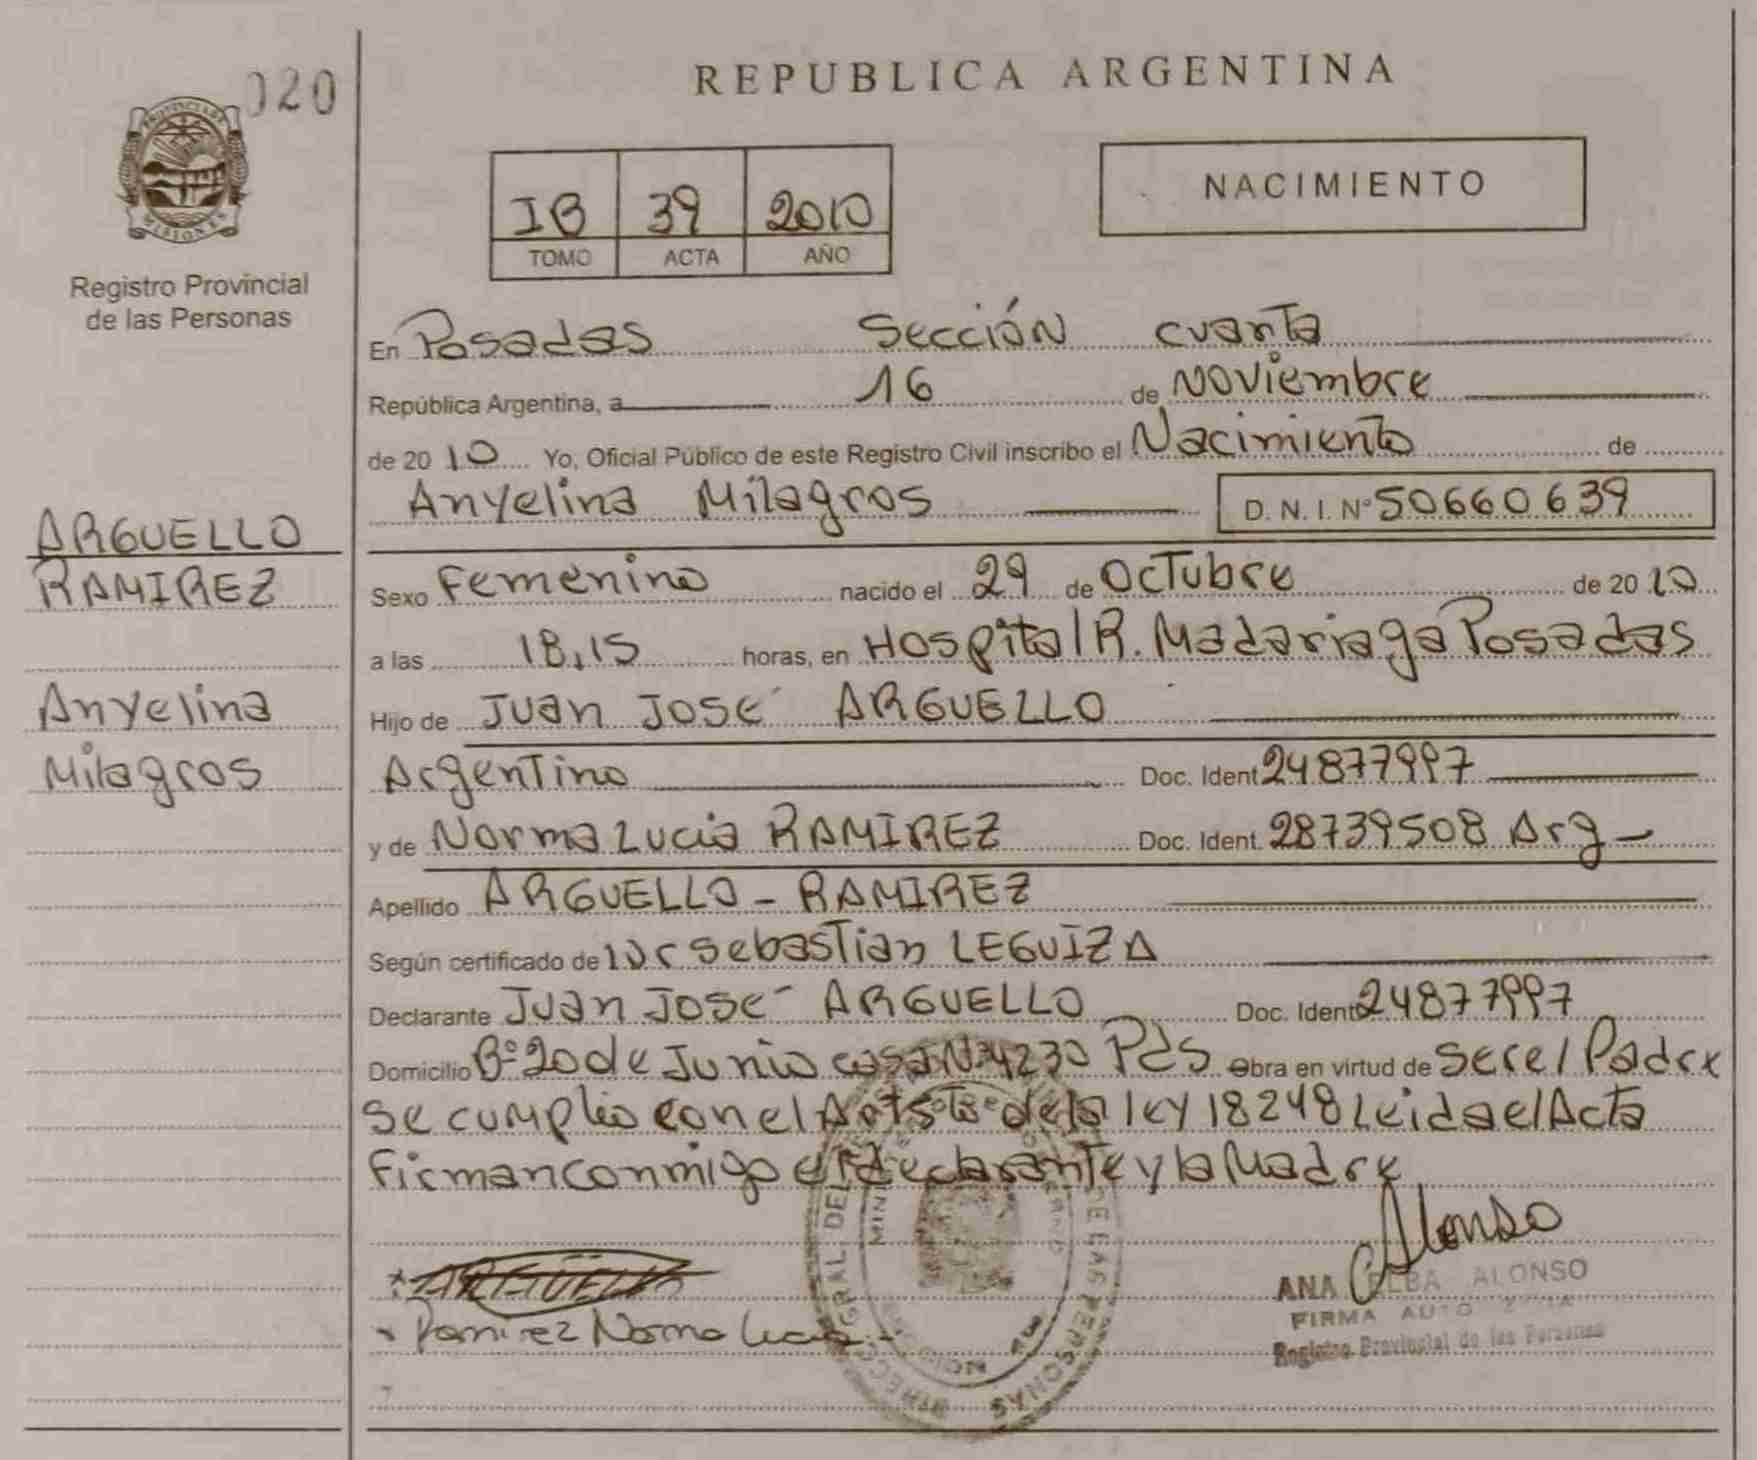 020
REPUBLICA ARGENTINA
PROVINCIA DE
MISIONES
Registro Provincial
de las Personas
IB 39 2010
TOMO ACTA AÑO
NACIMIENTO
En Posadas Sección cuarta
República Argentina, a 16 de Noviembre
de 2010 Yo, Oficial Público de este Registro Civil inscribo el Nacimiento de
Anyelina Milagros D. N. I. Nº 50660639
ARGUELLO
RAMIREZ
Anyelina
Milagros
Sexo Femenino nacido el 29 de Octubre de 2010
a las 18,15 horas, en Hospital R. Madariaga Posadas
Hijo de Juan José ARGUELLO
Argentino Doc. Ident 24877997
y de Norma Lucia RAMIREZ Doc. Ident. 28739508 Arg
Apellido ARGUELLO - RAMIREZ
Según certificado de Sebastian LEGUIZA
Declarante Juan José ARGUELLO Doc. Ident 24877997
Domicilio Bº 20 de Junio casa Nº 4230 Pds Obra en virtud de ser el Padre
se cumplio con el de la ley 18248 Leida el Acta
Firman conmigo el declarante y la Madre
Alonso
ARGUELLO
Ramirez Norma Lucia
ANA ELBA ALONSO
FIRMA
Registro Provincial de las Personas
DE LAS PERSONAS